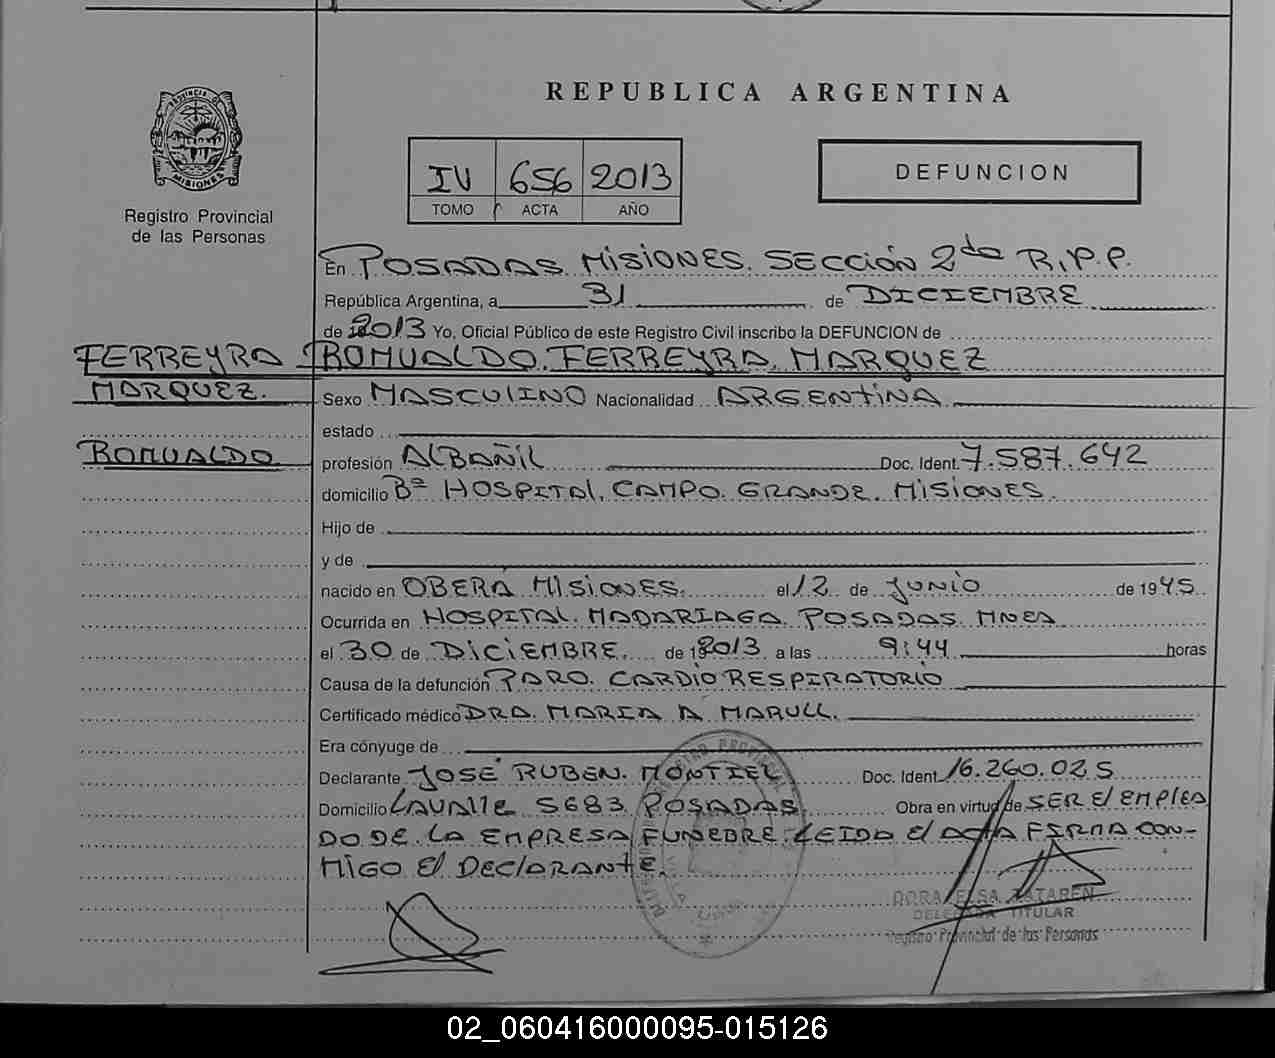 REPUBLICA ARGENTINA
PROVINCIA DE
MISIONES
Registro Provincial
de las Personas
IV 656 2013
TOMO ACTA AÑO
DEFUNCION
En POSADAS. MISIONES. SECCIÓN 2da R.P.P.
República Argentina, a 31 de DICIEMBRE
de 2013 Yo, Oficial Público de este Registro Civil inscribo la DEFUNCION de
FERREYRA
MARQUEZ.
ROMUALDO
ROMUALDO. FERREYRA. MARQUEZ
Sexo MASCULINO Nacionalidad ARGENTINA
estado
profesión ALBAÑIL Doc. Ident. 7.587.642
domicilio Bº HOSPITAL. CAMPO. GRANDE. MISIONES.
Hijo de
y de
nacido en OBERÁ MISIONES. el 12 de JUNIO de 1945.
Ocurrida en HOSPITAL. MADARIAGA. POSADAS. MNES
el 30 de DICIEMBRE. de 2013 a las 9:44 horas
Causa de la defunción PARO. CARDIO RESPIRATORIO
Certificado médico DRA. MARIA A MARULL.
Era cónyuge de
Declarante JOSÉ RUBEN. MONTIEL Doc. Ident. 16.260.025
Domicilio LAVAlle 5683 POSADAS. Obra en virtud de SER El EMPLEA
DO DE. LA EMPRESA FUNEBRE LEIDA El ACTA FIRMA CON-
MIGO El DEClARANTE.
DORA ELSA
DELEGADA TITULAR
Registro Provincial de las Personas
02_060416000095-015126